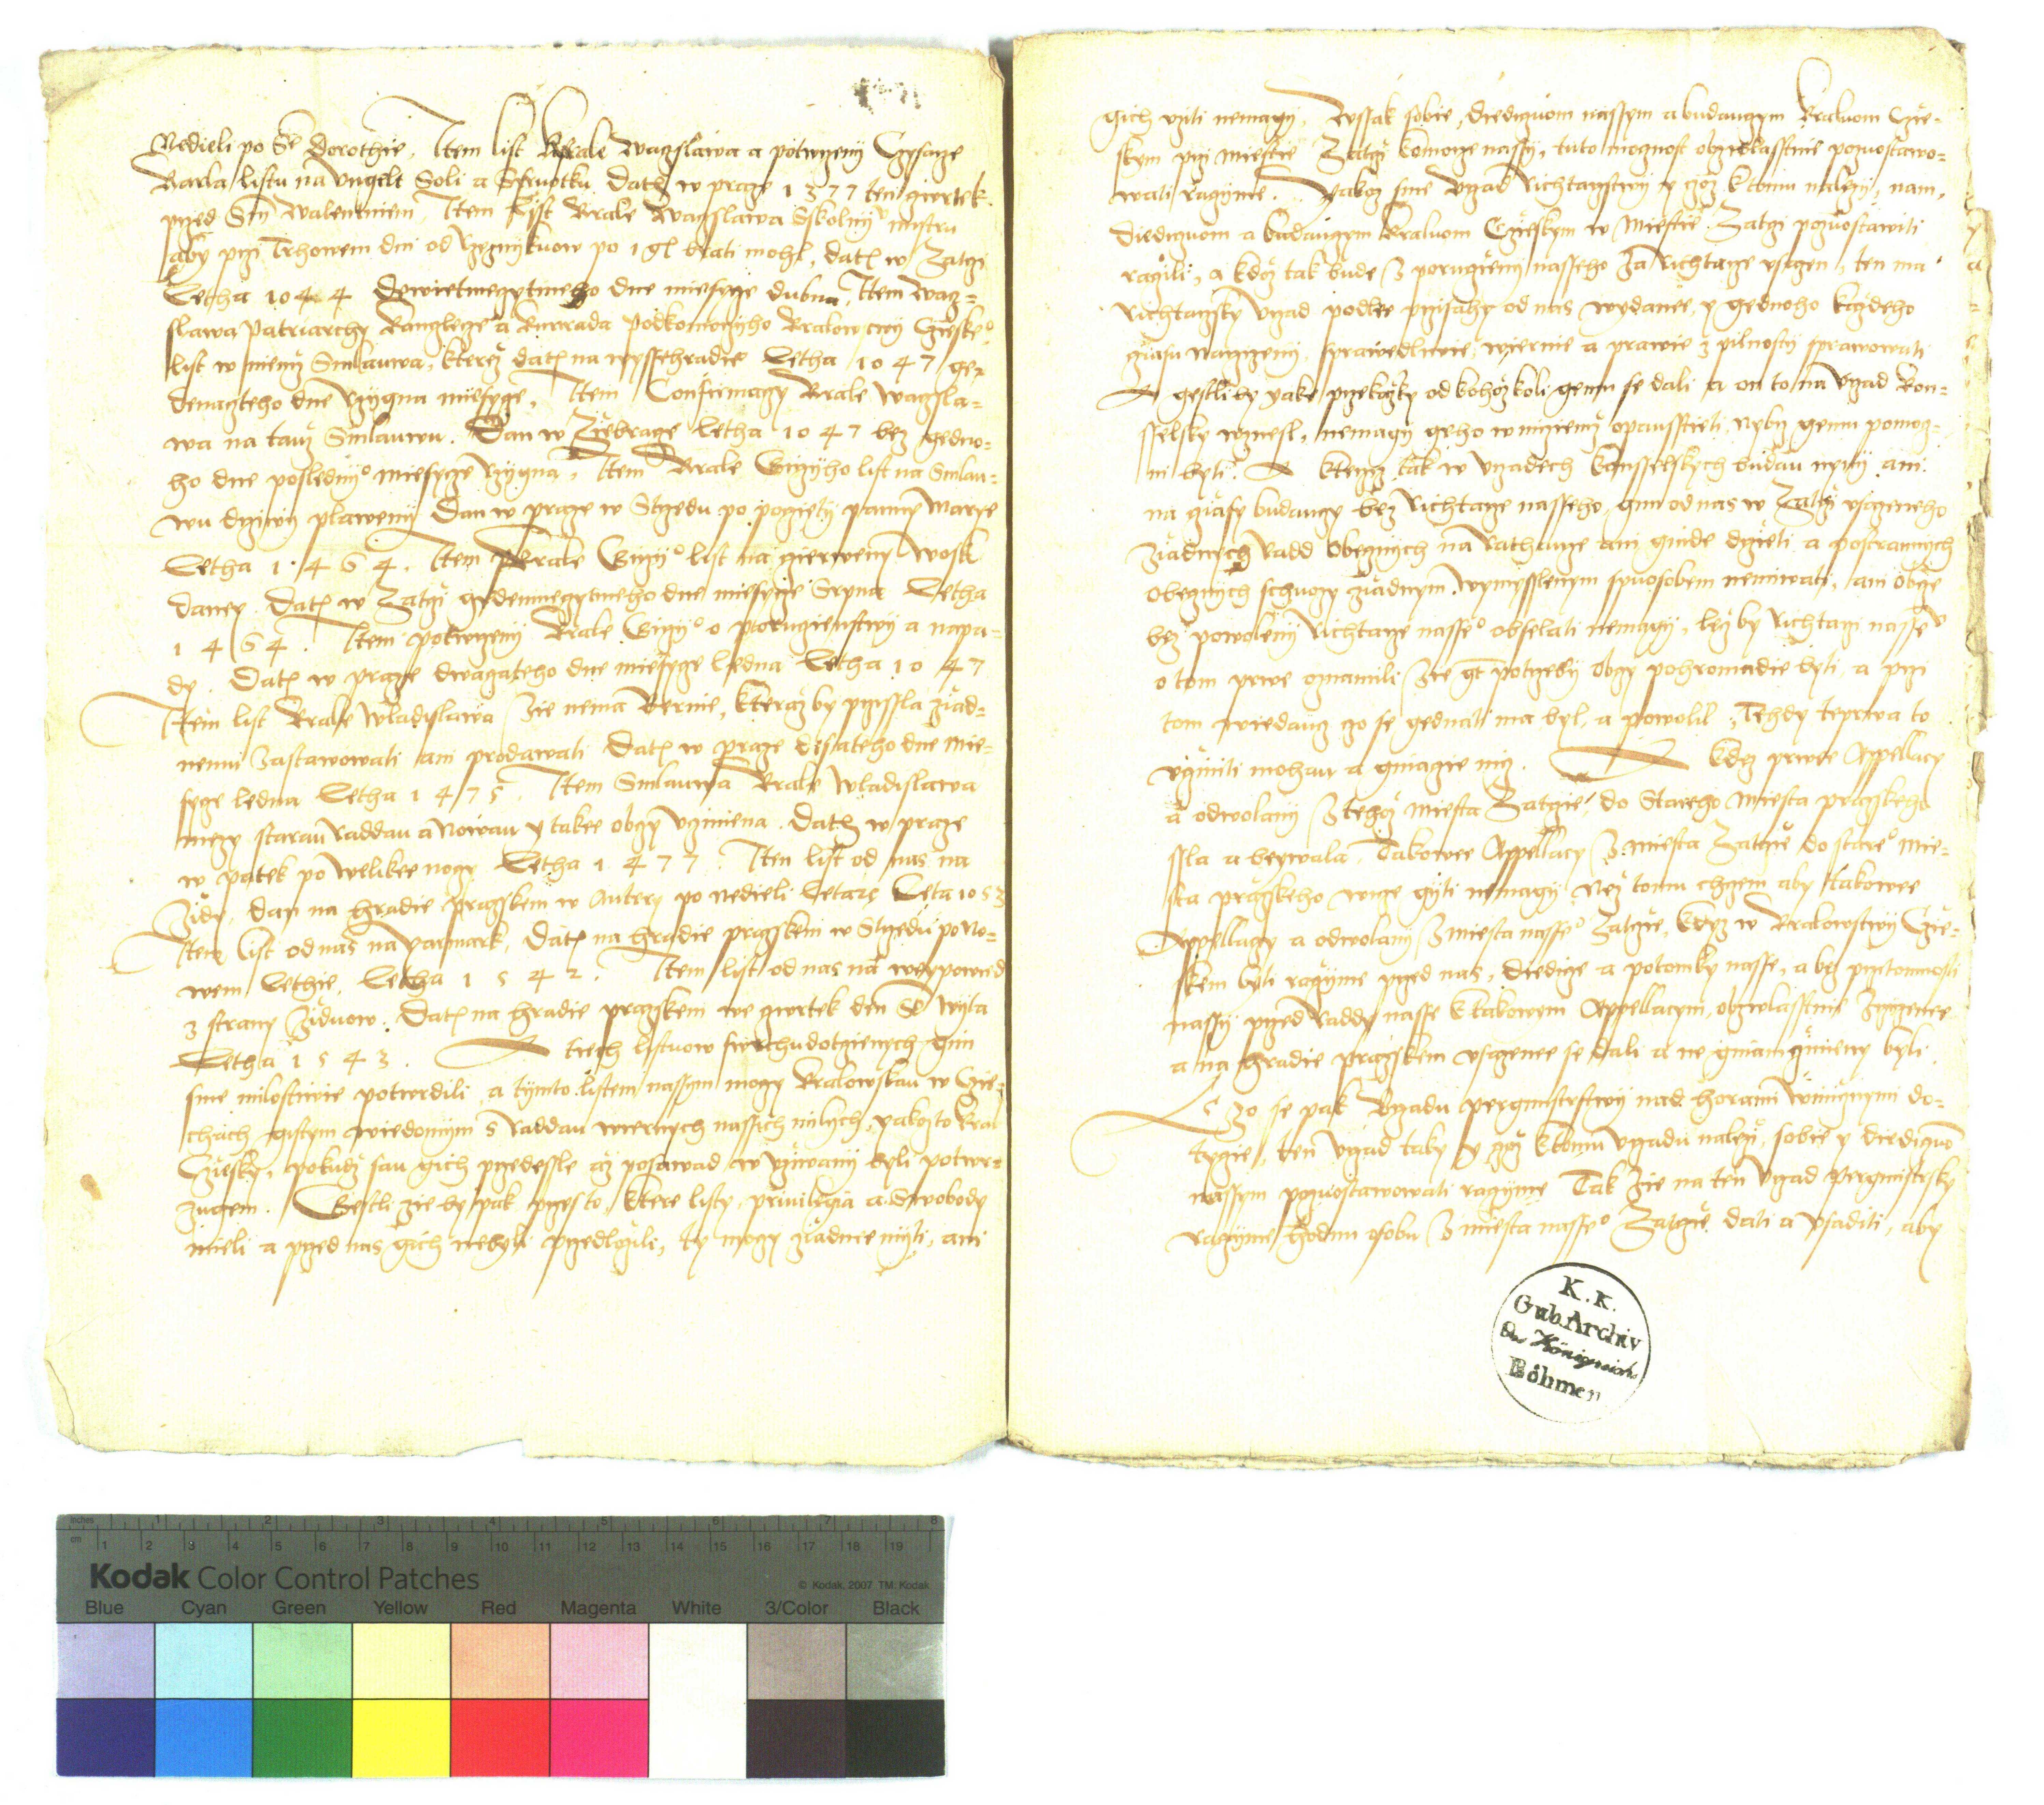 Nedieli po Se dorothie, Item list Krale Waczslawa a potwrzenij Czysarze
Karla listu na Ungelt Soli a Dat w praze 1377 ten cztwrtek
przed Sm Walentinem, Item list Krale Waczslawa Sskolnij mistru
aby przi Trhowem dni od po 1 gl brati mohl, dat w Zatczi
Letha 1044 dne miesycze dubna, Item Wacz-
slawa Patriarchy a Podkomorzyho Kralowstwij Czieskeo
list w nieniz Smlauwa, kteryz dat na wyssehradie Letha 1047 ge-
denaczteho dne Rzygna miesycze, Item Confirmaczy Krale Waczsla-
wa na tauz Smlauwu. Dan w Ziebracze Letha 1047 bez gedno-
ho dne poslednijo miesycze Rzygna, Item Krale Girzyho list na Smlau-
wu drziwij plawenij Dan w praze w Strzedu po poczeti panny Marye
Letha 1464. Item Krale Girzijo list na czierwenij Wosk
daney. Dat w Zatczi dne miesycze Srpna Letha
1464. Item potwrzenij Krale Girzijo o porucziensstwij a napa-
dy. Dat w praze dwaczateho dne miesycze Ledna Letha 1047
Item list Krale Wladislawa zie nema Bernie, kteraz by przissla ziad-
nemu zastawowati ani prodawati Dat w praze desateho dne mie-
sycze ledna Letha 1475, Item Smlauwa Krale Wladislawa
mezy starau raddau a Nowau y takee obczy Vcziniena. Dat w praze
w patek po Welikee noczy Letha 1477. Item list od nas na
Zidy, dan na hradie prazskem w Autery po Nedieli Letare Leta 1053
Item list od nas na Yarmark, Dat na hradie prazskem w Strzedu po No-
wem Lethie, Letha 1542. Item list od nas na weypowied
z strany Ziduow. Dat na hradie prazskem we cztwrtek den So Wijta
Letha 1543. A tiech listuow swrchudotczienych gim
sme milostiwie potwrdili, a tijmto listem nassym moczy Kralowskau w Czie-
chach gistym wiedomijm s Raddau wiernych nassich milych, yakozto Kral
Czesky, pokudz sau gich przedessle az posawad w vziwanij byli potwr-
zugem. Gestli zie by pak przes to, ktere listy, priuilegia a Swobody
mieli a przed nas gich nebyli przedlozili, ty moczy ziadnee mijti, ani
gich vziti nemagij, Wssak sobie, diediczuom nassym a budauczym Kraluom Czie-
skym przi miestie Zatczi komorze nassij, tuto mocznost obzwlasstnie pozuostawo-
wati raczyme. Yakoz sme Vrzad Richtarzstwij y coz k tomu nalezij, nam,
diediczuom a budauczym Kraluom Czieskym w Miestie Zatczi pozuostawiti
raczili, a kdoz tak bude z poruczienij nasseho za Richtarze vsazen, ten ma
Richtarzsky Vrzad podlee przisahy od nas wydanee, y gednoho kazdeho
cziasu narzizenij, sprawedliwie, wiernie a prawie z pilnostij sprawowati
A gestli by yake przekazky od kohozkoli gemu se dali a on to na Vrzad Kon-
sselsky wznesl, nemagij geho w niczemz opausstieti, nybrz gemu pomocz-
ni byti. A kterziz tak w Vrzadech Konsselskych budau nynij ani
na cziasy budauczy bez Richtarze nasseho, gim od nas w Zatczi vsazeneho
ziadnych Radd Obecznych na Rathauze ani ginde drzieti a postrannych
obecznych schuozy ziadnym wymysslenym spuosobem nemiwati, ani obcze
bez powolenij Richtarze nasseo obselati nemagij, lecz by Richtarzi nassemu
o tom prwe oznamili, zie gt potrzeby obczy pohromadie byti, a przi
tom wiedauz czo se gednati ma byl, a powolil. Tehdy teprwa to
vcziniti mohau a ginacze nicz. A kdez prwee Appellacy
a odwolanij z tehoz miesta Zatczie, do Stareho Miesta prazskeho
ssla a beywala, Takowee Appellacy z miesta Zatczie do stareo Mie-
sta prazskeho wicze gijti nemagij. Nez tomu chczem, aby takowee
Appellaczy a odwolanij z miesta nasseo Zatczie, kdyz w Kralowstwij Czie-
skem byti raczyme przed nas, diedicze a potomky nasse, a bez przitomnosti
nassij przed Raddy nasse k takowem Appellacym, obzwlasstnie zrzizenee
a na hradie prazskem vsazenee se dali a ne ginam czinieny byli.
Czo se pak Vrzadu pergmistrstwij nad horami winicznymi do-
tycze, ten Vrzad taky y coz k tomu Vrzadu nalezij, sobie y diediczuom
nassym pozuostawowati raczyme Tak zie na ten Vrzad pergmistrsky
raczyme hodnu osobu z miesta nasseo Zatczie dati a vsaditi, aby
K. K.
Gub. Archiv
Königreich
Böhmen
inches 1 2 3 4 5 6 7 8
cm 1 2 3 4 5 6 7 8 9 10 11 12 13 14 15 16 17 18 19
Kodak Color Control Patches
© Kodak, 2007 TM: Kodak
Blue Cyan Green Yellow Red Magenta White 3/Color Black